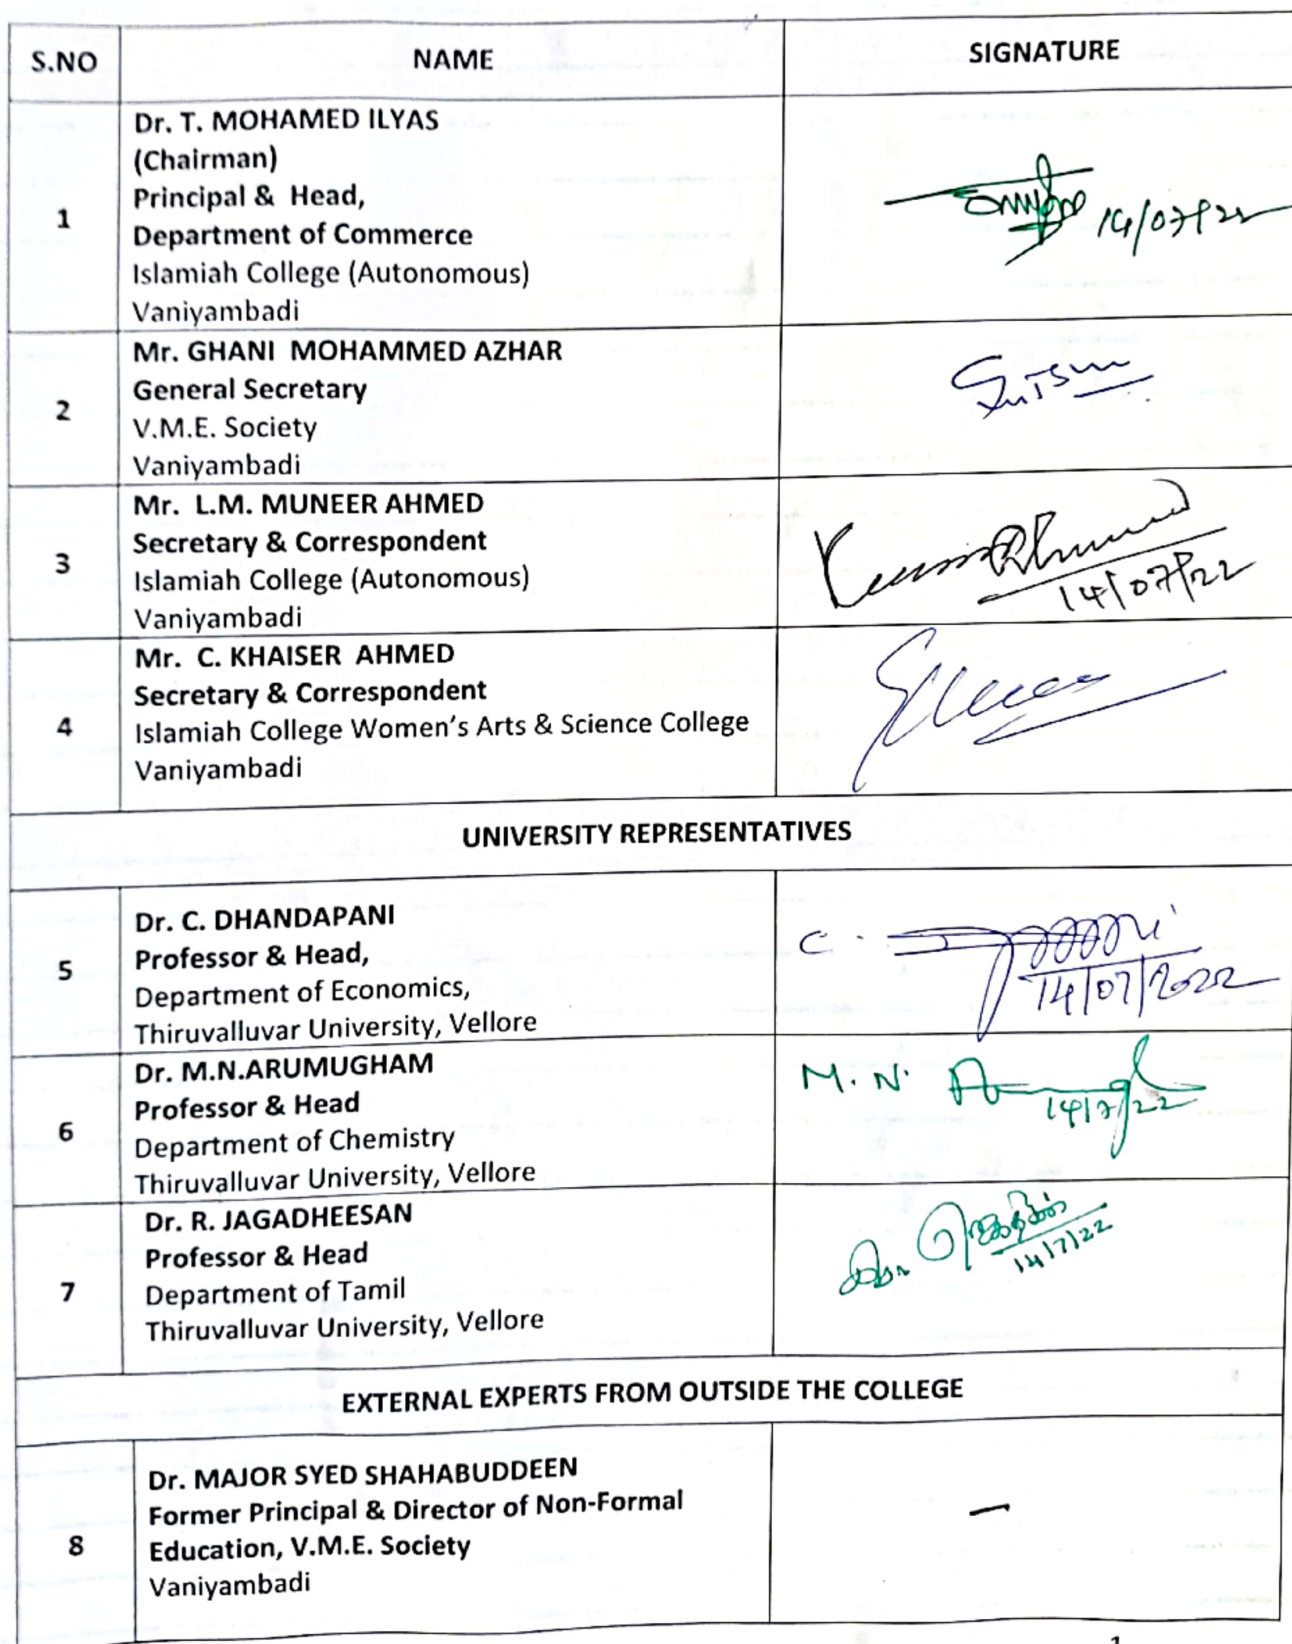 S.NO NAME SIGNATURE
1
Dr. T. MOHAMED ILYAS
(Chairman)
Principal & Head,
Department of Commerce
Islamiah College (Autonomous)
Vaniyambadi
14/07/22
2
Mr. GHANI MOHAMMED AZHAR
General Secretary
V.M.E. Society
Vaniyambadi
3
Mr. L.M. MUNEER AHMED
Secretary & Correspondent
Islamiah College (Autonomous)
Vaniyambadi
14/07/22
4
Mr. C. KHAISER AHMED
Secretary & Correspondent
Islamiah College Women's Arts & Science College
Vaniyambadi
UNIVERSITY REPRESENTATIVES
5
Dr. C. DHANDAPANI
Professor & Head,
Department of Economics,
Thiruvalluvar University, Vellore
C.
14/07/2022
6
Dr. M.N.ARUMUGHAM
Professor & Head
Department of Chemistry
Thiruvalluvar University, Vellore
M. N.
14/7/22
7
Dr. R. JAGADHEESAN
Professor & Head
Department of Tamil
Thiruvalluvar University, Vellore
14/7/22
EXTERNAL EXPERTS FROM OUTSIDE THE COLLEGE
8
Dr. MAJOR SYED SHAHABUDDEEN
Former Principal & Director of Non-Formal
Education, V.M.E. Society
Vaniyambadi
—